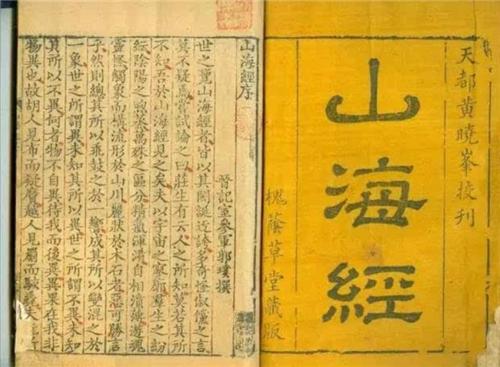 天都黄曉峯挍刊
山海經
槐蔭草堂藏版
山海經序
晉記室參軍郭璞撰
世之覽山海經者皆以其閎誕迂誇多奇怪俶儻之言
莫不疑焉嘗試論之曰莊生有云人之所知莫若其所
不知吾於山海經見之矣夫以宇宙之寥廓羣生之紛
紜陰陽之煦蒸萬殊之區分精氣渾淆自相濆薄遊魂
靈怪觸象而構流形於山川麗狀於木石者惡可勝言
乎然則總其所以乖鼓之於響成其所以變混之於
一象世之所謂異未知其所以異世之所謂不異未知
其所以不異何者物不自異待我而後異異果在我非
物異也故胡人見布而疑黂越人見罽而駭毳夫翫所